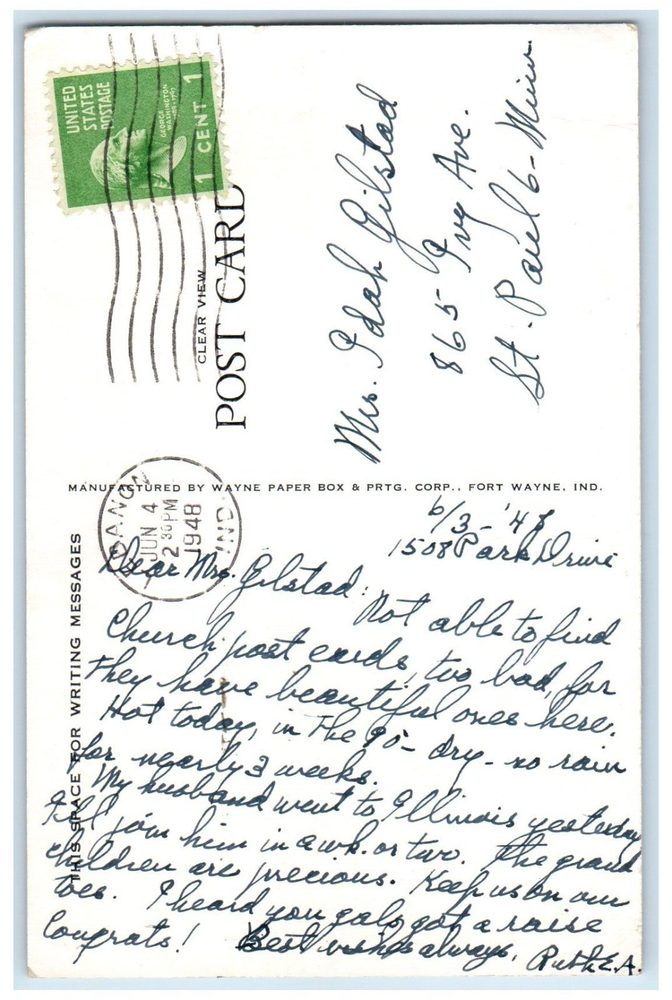 UNITED
STATES
POSTAGE
GEORGE
WASHINGTON
1 CENT 1
CLEAR VIEW
POST CARD
Mrs. Idah Gilstad
865 Ivy Ave.
St. Paul 6 - Minn.
MANUFACTURED BY WAYNE PAPER BOX & PRTG. CORP., FORT WAYNE, IND.
JUN 4
2 30 PM
1948
IND.
THIS SPACE FOR WRITING MESSAGES
6/3 - '48
1508 Park Drive
Dear Mrs. Gilstad:
Not able to find
Church post cards, too bad, for
they have beautiful ones here.
Hot today, in the 90 - dry - no rain
for nearly 3 weeks.
My husband went to Illinois yesterday
I'll join him in a wk. or two. The grand
children are precious. Keep us on our
toes. I heard you gals got a raise
Congrats! Best wishes always, Ruth E.A.